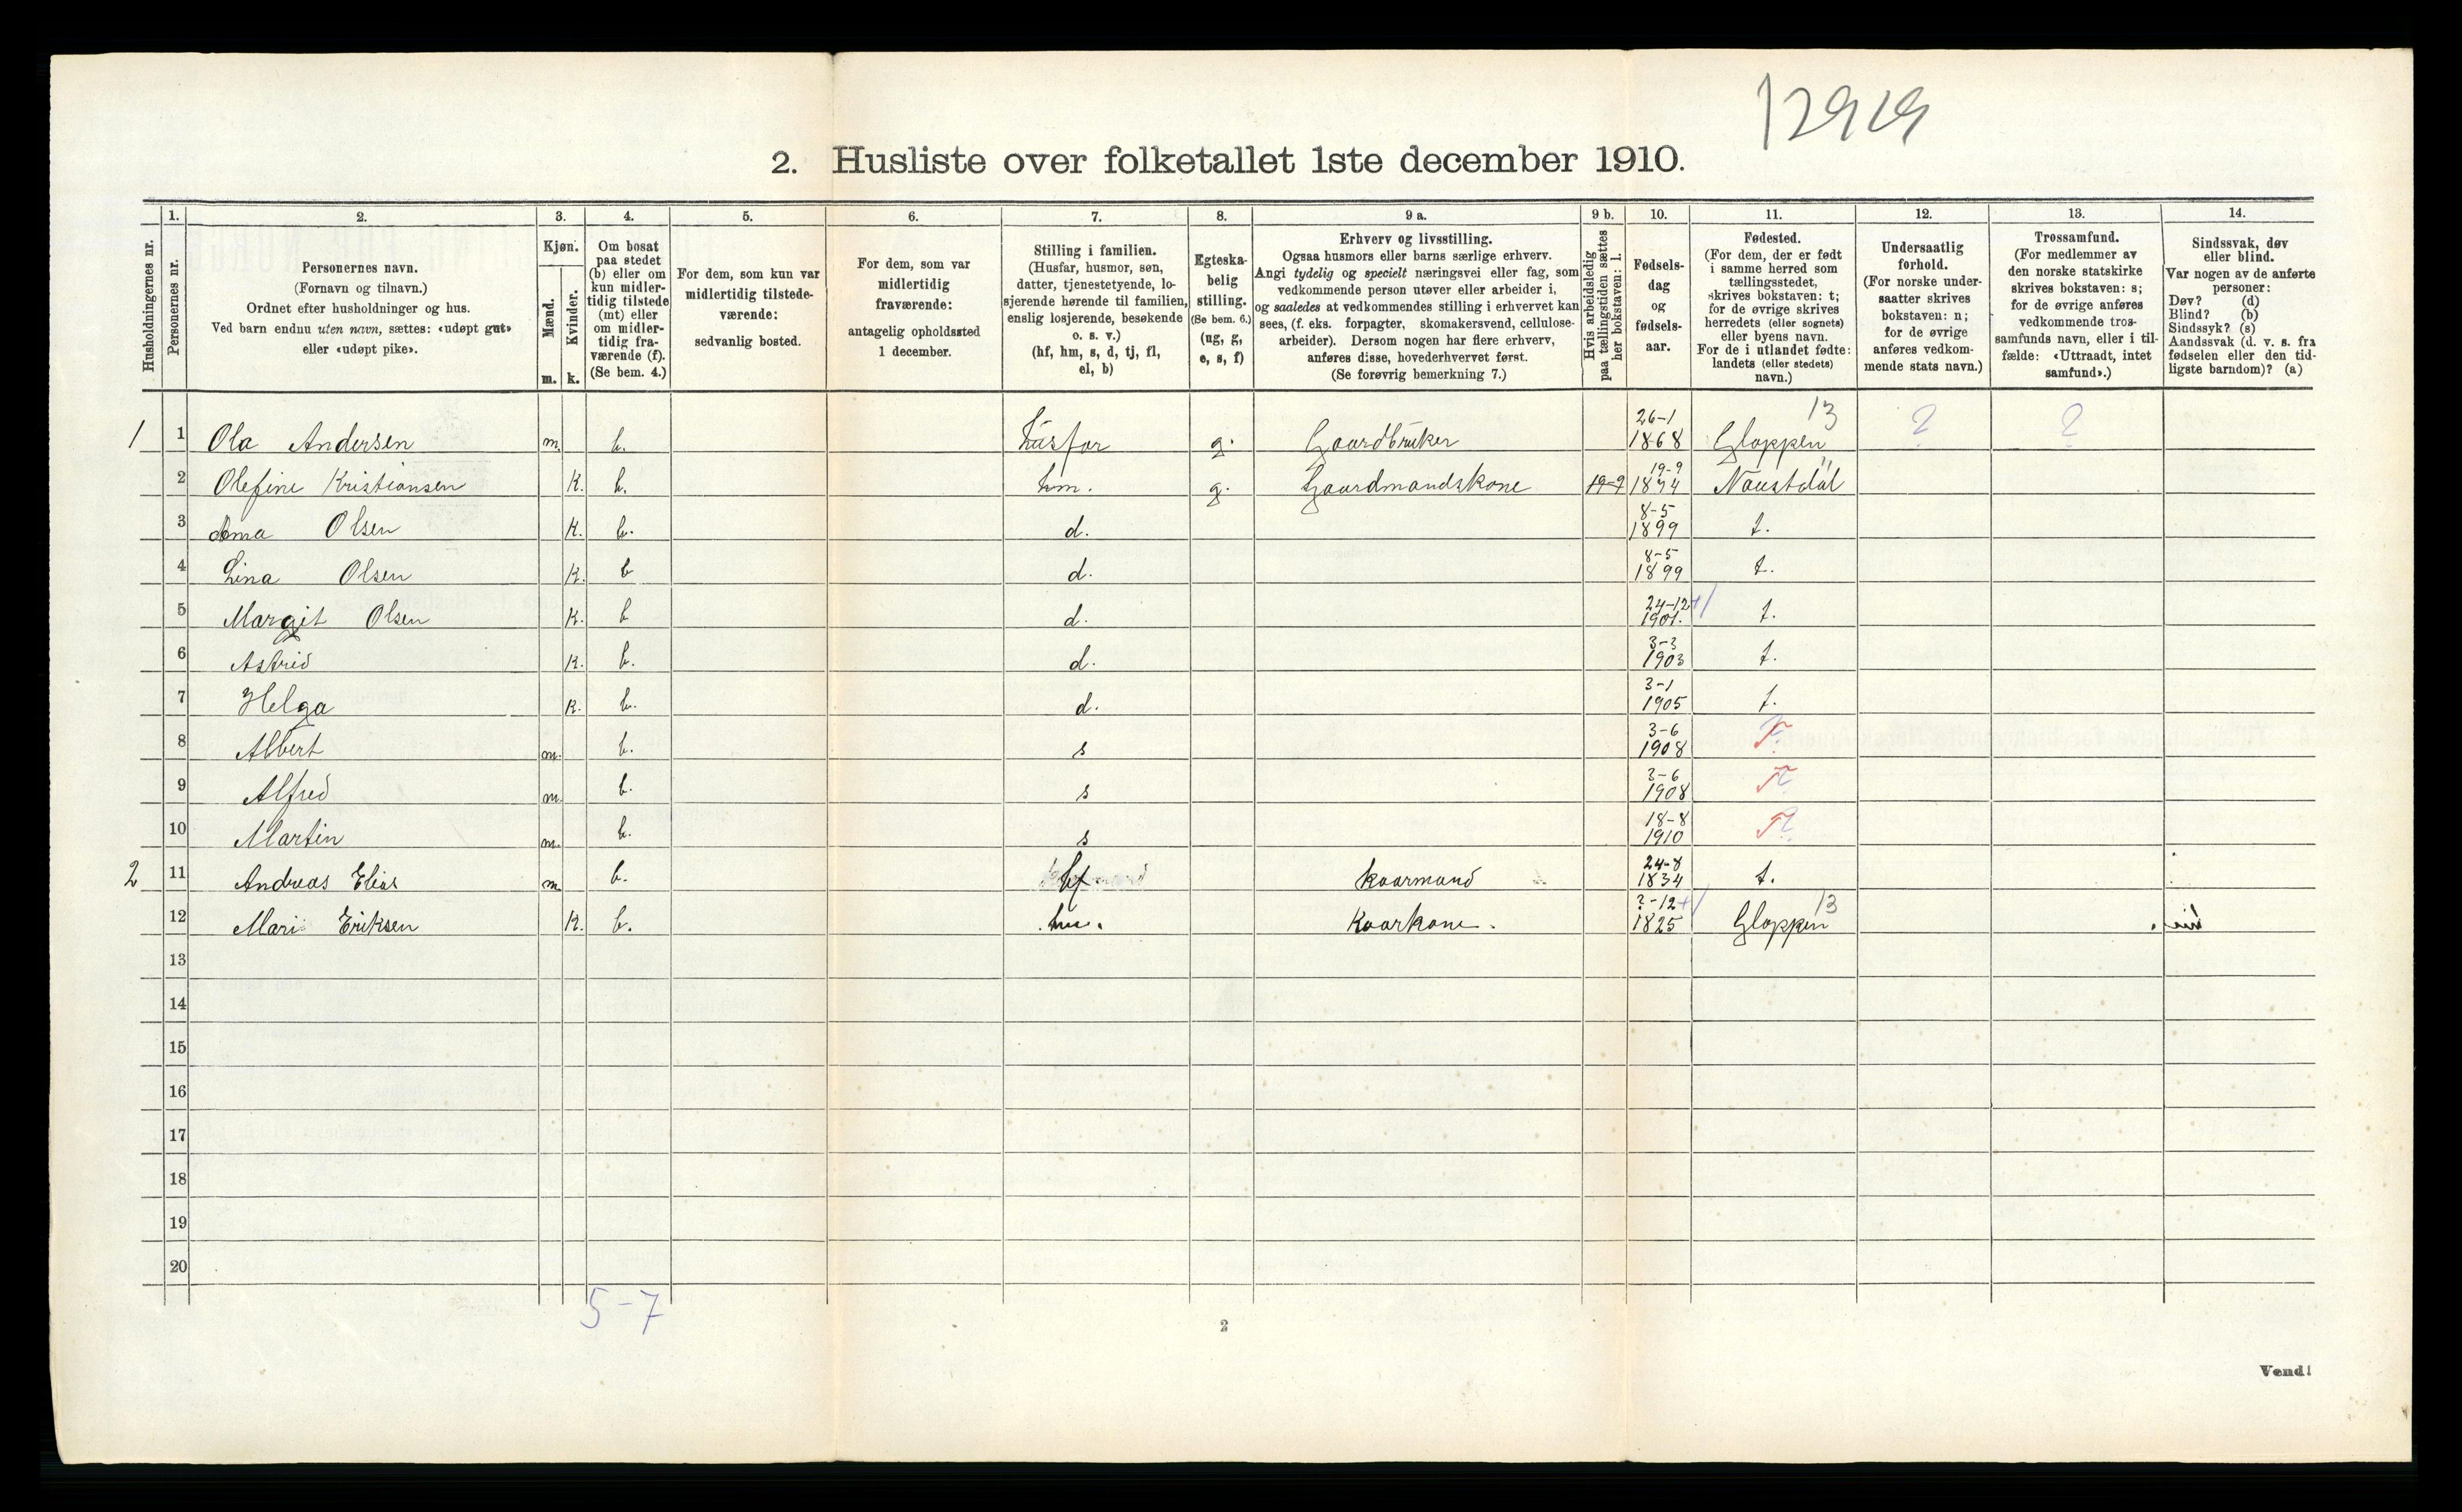 12919
2. Husliste over folketallet 1ste december 1910.
Husholdningernes nr.
1.
Personernes nr.
2.
Personernes navn.
(Fornavn og tilnavn.)
Ordnet efter husholdninger og hus.
Ved barn endnu uten navn, sættes: «udøpt gut»
eller «udøpt pike».
3.
Kjøn.
Mænd.
Kvinder.
m. k.
4.
Om bosat
paa stedet
(b) eller om
kun midler-
tidig tilstede
(mt) eller
om midler-
tidig fra-
værende (f).
(Se bem. 4.)
5.
For dem, som kun var
midlertidig tilstede-
værende:
sedvanlig bosted.
6.
For dem, som var
midlertidig
fraværende:
antagelig opholdssted
1 december.
7.
Stilling i familien.
(Husfar, husmor, søn,
datter, tjenestetyende, lo-
sjerende hørende til familien,
enslig losjerende, besøkende
o. s. v.)
(hf, hm, s, d, tj, fl,
el, b)
8.
Egteska-
belig
stilling.
(Se bem. 6.)
(ug, g,
e, s, f)
9 a.
Erhverv og livsstilling.
Ogsaa husmors eller barns særlige erhverv.
Angi tydelig og specielt næringsvei eller fag, som
vedkommende person utøver eller arbeider i,
og saaledes at vedkommendes stilling i erhvervet kan
sees, (f. eks. forpagter, skomakersvend, cellulose-
arbeider). Dersom nogen har flere erhverv,
anføres disse, hovederhvervet først.
(Se forøvrig bemerkning 7.)
9 b.
Hvis arbeidsledig
paa tællingstiden sættes
her bokstaven: l.
10.
Fødsels-
dag
og
fødsels-
aar.
11.
Fødested.
(For dem, der er født
i samme herred som
tællingsstedet,
skrives bokstaven: t;
for de øvrige skrives
herredets (eller sognets)
eller byens navn.
For de i utlandet fødte:
landets (eller stedets)
navn.)
12.
Undersaatlig
forhold.
(For norske under-
saatter skrives
bokstaven: n;
for de øvrige
anføres vedkom-
mende stats navn.)
13.
Trossamfund.
(For medlemmer av
den norske statskirke
skrives bokstaven: s;
for de øvrige anføres
vedkommende tros-
samfunds navn, eller i til-
fælde: «Uttraadt, intet
samfund».)
14.
Sindssvak, døv
eller blind.
Var nogen av de anførte
personer:
Døv? (d)
Blind? (b)
Sindssyk? (s)
Aandssvak (d. v. s. fra
fødselen eller den tid-
ligste barndom)? (a)
1 1 Ola Andersen m. b. husfar g. Gaardbruker 26-1 1868 Gloppen 13 ? ?
2 Olefine Kristiansen K. b. hm. g. Gaardmandskone 19-9 19-9 1874 Naustdal "
3 Anna Olsen K. b. d. 8-5 1899 t.
4 Lina Olsen K. b d. 8-5 1899 t.
5 Margit Olsen K. b d. 24-12 1901. t.
6 Astrid K. b. d. 3-3 1903 t.
7 Helga K. b. d. 3-1 1905 t.
8 Albert m. b. s 3-6 1908 T ?
9 Alfred m. b. s 3-6 1908 T ?
10 Martin m. b. s 18-8 1910 T ?
2 11 Andreas Elias m. b. hf. kaarmand 24-8 1834 t.
12 Mari Eriksen K. b. hm. Kaarkone. ?-12 1825 Gloppen 13
13
14
15
16
17
18
19
20
5-7
2
Vend!